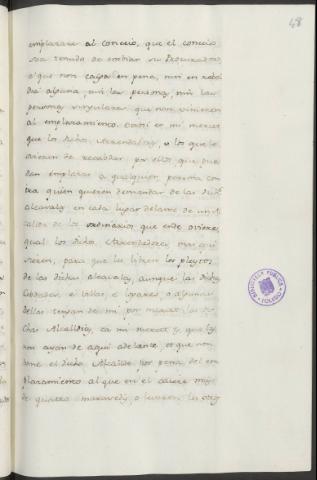 48
emplazare al concejo, que el concejo
sea tenudo de embiar su Procurador,
e que non caigan en pena, nin en rebel
dia alguna, nin las personas, nin las
personas singulares que non vinieren
al emplazamiento. Otrosi es mi merced
que los dichos Arrendadores, o los que lo
ovieren de recabdar por ellos, que pue
dan emplazar a qualesquier persona con
tra quien quieren demandar de las dichas
alcavalas en cada lugar delante de un Al
calde de los ordinarios que ende oviere
qual los dichos Arrendadores mas qui
sieren, para que les libren los pleytos
de las dichas alcavalas, aunque las dichas
Cibdades, e Villas, e logares o algunas
dellas tengan de mi por merced las di
chas Alcaldias, ca mi merced es que las
non ayan de aqui adelante, et que non
tome el dicho Alcalde por pena del em
plazamiento al que en él cayere mas
de quatro maravedis, e lieven los otros
BIBLIOTECA PUBLICA
TOLEDO